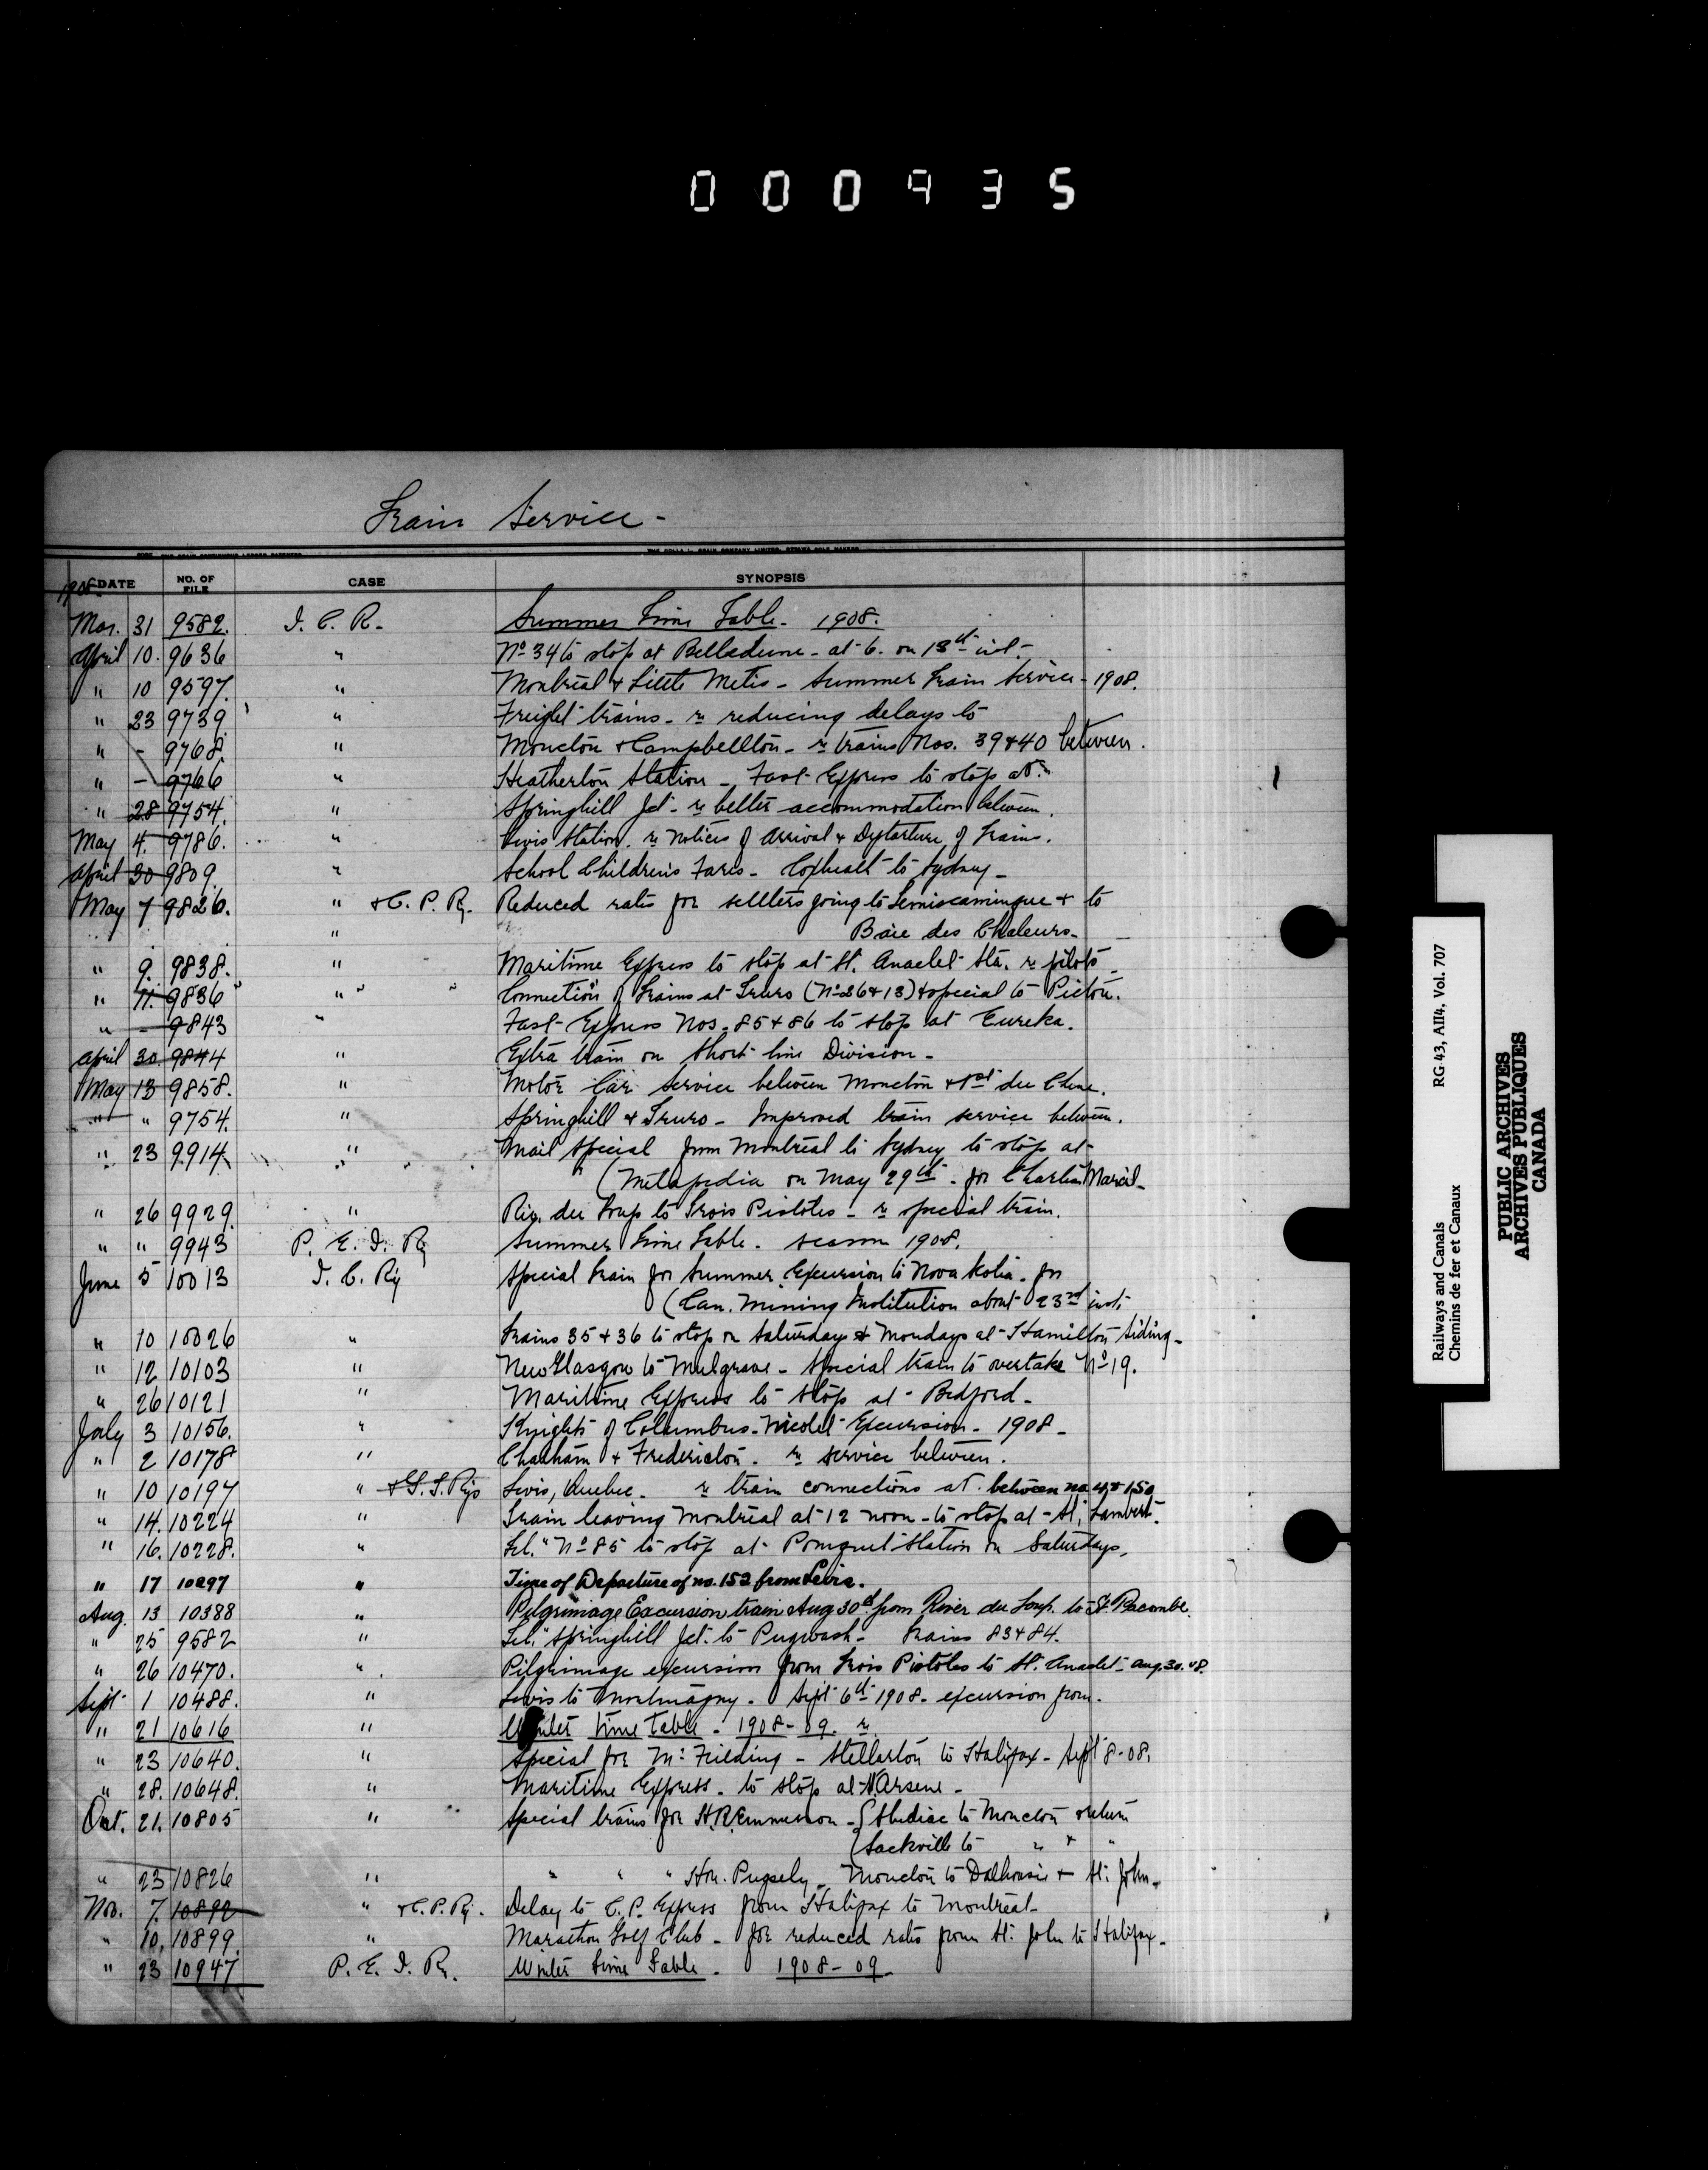 000935
Train Service -
1908 DATE NO. OF FILE CASE SYNOPSIS
Mar. 31 9582. I. C. R. Summer Time Table. 1908.
April 10. 9636 " No 34 to stop at Belledune - at 6. on 13th inst.
" 10 9597. " Montreal & Little Metis - Summer Train Service - 1908.
" 23 9739. " Freight trains - re reducing delays to
" - 9768. " Moncton & Campbellton - re trains Nos. 39 & 40 between.
" - 9766 " Heatherton Station - Fast Express to stop at
" 28 9754. " Springhill Jct - re better accommodation between.
May 4. 9786. " Levis Station. re Notices of Arrival & Departure of Trains.
April 30 9809. " School Children's Fares - Coxheath to Sydney -
May 7 9826. " & C. P. Ry. Reduced rates for settlers going to Temiscamingue & to
" Baie des Chaleurs -
" 9. 9838. " Maritime Express to stop at St. Anaclet Sta. re pilots
" 11. 9836 " Connection of Trains at Truro (No 26 & 13) & special to Pictou.
" - 9843 " Fast Express Nos. 85 & 86 to stop at Eureka.
April 30. 9844 " Extra train on Short line Division -
May 13 9858. " Motor Car service between Moncton & Pt du Chene.
" " 9754. " Springhill & Truro - Improved train service between.
" 23 9914 " Mail Special from Montreal to Sydney to stop at -
(Metapedia on May 29th - for Charles Marcil -
" 26 9929. " Riv. du Loup to Trois Pistoles - re special train.
" " 9943 P. E. I. Ry Summer Time Table. season 1908.
June 5 10013 I. C. Ry Special Train for Summer Excursion to Nova Scotia. for
(Can. Mining Institution about 23rd inst.
" 10 10026 " Trains 35 & 36 to stop on Saturdays & Mondays at Hamilton Siding -
" 12 10103 " New Glasgow to Mulgrave - Special train to overtake No 19.
" 26 10121 " Maritime Express to stop at - Bedford -
July 3 10156. " Knights of Columbus - Nicolet Excursion - 1908 -
" 2 10178 " Chatham & Fredericton. re service between.
" 10 10197 " & G. T. Rys Levis, Quebec. re train connections at between no 4 & 150
" 14. 10224 " Train leaving Montreal at 12 noon - to stop at - St. Lambert.
" 16. 10228. " Tel. " No 85 to stop at Pomquet Station on Saturdays,
" 17 10297 " Time of Departure of no. 152 from Levis.
Aug. 13 10388 " Pilgrimage Excursion train Aug 30th from River du Loup. to St. Pacombe.
" 25 9582 " Tel. " Springhill Jct. to Pugwash - Trains 83 & 84.
" 26 10470. " Pilgrimage excursion from Trois Pistoles to St. Anaclet - Aug. 30. 08.
Sept 1 10488. " Levis to Montmagny. Sept 6th 1908 - excursion from.
" 21 10616 " Winter time table - 1908-09. re
" 23 10640. " Special for Mr Fielding - Stellarton to Halifax - Sept 8-08.
" 28. 10648. " Maritime Express. to stop at St. Arsene -
Oct. 21. 10805 " Special trains for H. R. Emmerson - {Shediac to Moncton & return
(Sackville to " & "
" 23 10826 " " " " Hon. Pugsely - Moncton to Dalhousie & St. John -
Nov. 7. 10892 " & C. P. Ry. Delay to C. P. Express from Halifax to Montreal -
" 10. 10899. " Marathon Golf Club - for reduced rates from St. John to Halifax -
" 23 10947 P. E. I. Ry. Winter Time Table. 1908-09 -
Railways and Canals RG 43, AII4, Vol. 707
Chemins de fer et Canaux
PUBLIC ARCHIVES
ARCHIVES PUBLIQUES
CANADA